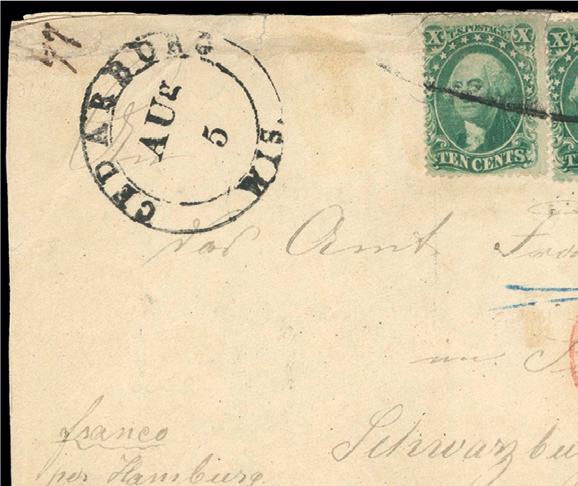 77
CEDARBURG WIS.
AUG
5
X U.S. POSTAGE X
TEN CENTS
das Amt
im
Schwarzbu
franco
per Hamburg.